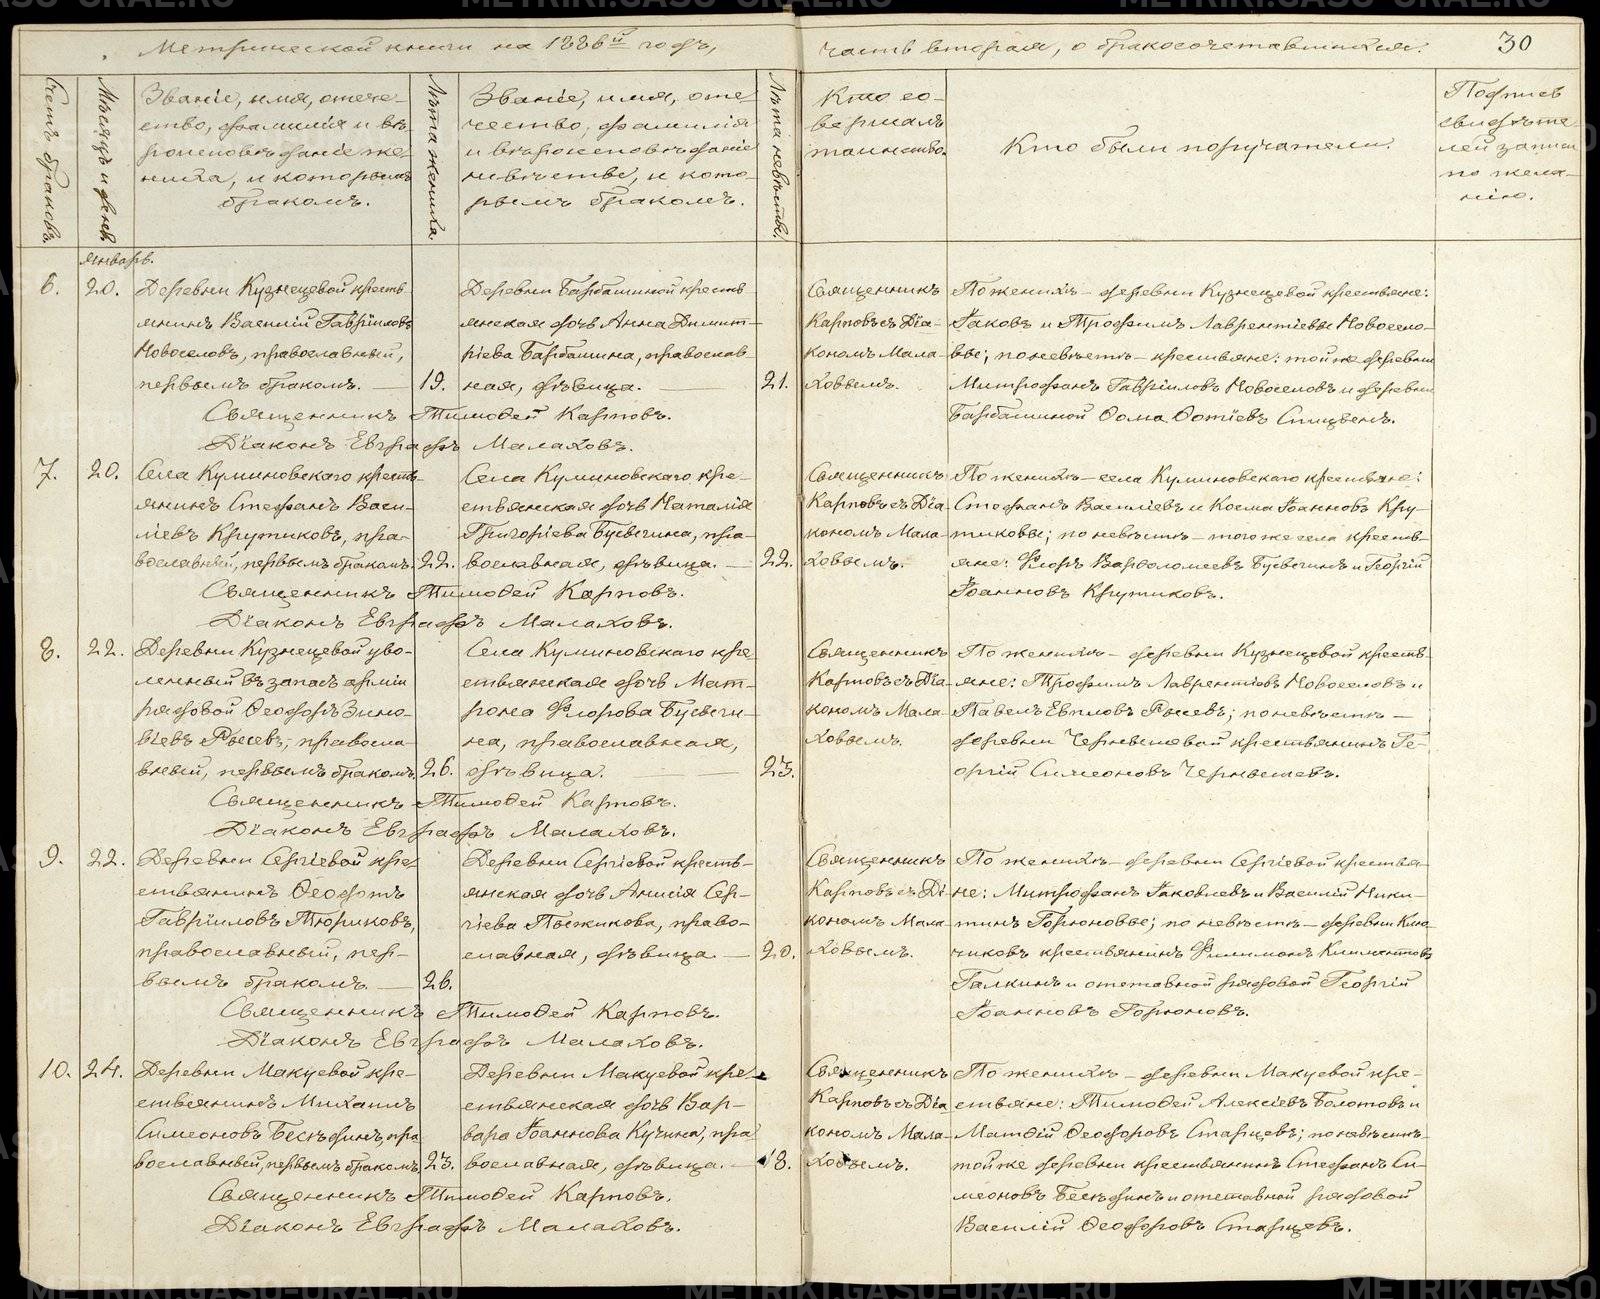 Метрической книги на 1886й годъ,
часть вторая, о бракосочетавшихся.
30
Счетъ браковъ.
Мѣсяцъ и день
Званіе, имя, отече-
ство, фамилія и вѣ-
роисповѣданіе же-
ниха, и которымъ
бракомъ.
Лѣта жениха
Званіе, имя, оте-
чество, фамилія
и вѣроисповѣданіе
невѣсты, и кото-
рымъ бракомъ.
Лѣта невѣсты.
Кто со-
вершалъ
таинство.
Кто были поручатели.
Подписъ
свидѣте-
лей записи
по жела-
нію.
Январь.
6.
20.
Деревни Кузнецевой кресть
янинъ Василій Гавріиловъ
Новоселовъ, православный,
первымъ бракомъ.
19.
Деревни Барбашиной кресть
янская дочь Анна Димит-
ріева Барбашина, православ
ная, дѣвица.
21.
Священникъ
Карповъ съ Діа-
кономъ Мала-
ховымъ.
По женихѣ – деревни Кузнецевой крестьяне:
Іаковъ и Трофимъ Лаврентіевы Новосело-
вы; по невѣстѣ – крестьяне: той же деревни
Митрофанъ Гавріиловъ Новоселовъ и деревни
Барбашиной Ѳома Ѳотіевъ Спицынъ.
Священникъ Тимоѳей Карповъ.
Діаконъ Евграфъ Малаховъ.
7.
20.
Села Куминовскаго кресть-
янинъ Стефанъ Васи-
ліевъ Крутиковъ, пра-
вославный, первымъ бракомъ.
22.
Села Куминовскаго кре-
стьянская дочь Наталія
Григоріева Бусыгина, пра-
вославная, дѣвица.
22.
Священникъ
Карповъ съ Діа
кономъ Мала-
ховымъ.
По женихѣ – села Куминовскаго крестьяне:
Стефанъ Василіевъ и Косма Іоанновъ Кру-
тиковы; по невѣстѣ – того же села кресть-
яне: Флоръ Варѳоломеевъ Бусыгинъ и Георгій
Іоанновъ Крутиковъ.
Священникъ Тимоѳей Карповъ.
Діаконъ Евграфъ Малаховъ.
8.
22.
Деревни Кузнецевой уво-
ленный въ запасъ арміи
рядовой Ѳеодоръ Зино-
віевъ Рысевъ, правосла-
вный, первымъ бракомъ.
26.
Села Куминовскаго кре
стьянская дочь Мат-
рона Флорова Бусыги-
на, православная,
дѣвица.
23.
Священникъ
Карповъ съ Діа-
кономъ Мала-
ховымъ.
По женихѣ – деревни Кузнецевой кресть-
яне: Трофимъ Лаврентіевъ Новоселовъ и
Павелъ Евпловъ Рысевъ; по невѣстѣ –
деревни Чернышевой крестьянинъ Ге-
оргій Симеоновъ Чернышевъ.
Священникъ Тимоѳей Карповъ.
Діаконъ Евграфъ Малаховъ.
9.
22.
Деревни Сергіевой кре
стьянинъ Ѳеодотъ
Гавріиловъ Тюриковъ,
православный, пер-
вымъ бракомъ.
26.
Деревни Сергіевой кресть-
янская дочь Анисія Сер-
гіева Пыжикова, право-
славная, дѣвица.
20.
Священникъ
Карповъ съ Ді-
кономъ Мала-
ховымъ.
По женихѣ – деревни Сергіевой крестья-
не: Митрофанъ Іаковлевъ и Василій Ники-
тинъ Горюновы; по невѣстѣ – деревни Клю-
чиковъ крестьянинъ Филимонъ Климентовъ
Галкинъ и отставной рядовой Георгій
Іоанновъ Горюновъ.
Священникъ Тимоѳей Карповъ.
Діаконъ Евграфъ Малаховъ.
10.
24.
Деревни Макуевой кре-
стьянинъ Михаилъ
Симеоновъ Бесѣдинъ, пра
вославный, первымъ бракомъ.
23.
Деревни Макуевой кре
стьянская дочь Вар-
вара Іоаннова Кучина, пра
вославная, дѣвица.
18.
Священникъ
Карповъ съ Діа
кономъ Мала-
ховымъ.
По женихѣ – деревни Макуевой кре-
стьяне: Тимоѳей Алексіевъ Болотовъ и
Матѳій Ѳеодоровъ Старцевъ; по невѣстѣ-
той же деревни крестьянинъ Стефанъ Си-
меоновъ Бесѣдинъ и отставной рядовой
Василій Ѳеодоровъ Старцевъ.
Священникъ Тимоѳей Карповъ.
Діаконъ Евграфъ Малаховъ.
METRIKI.GASO-URAL.RU